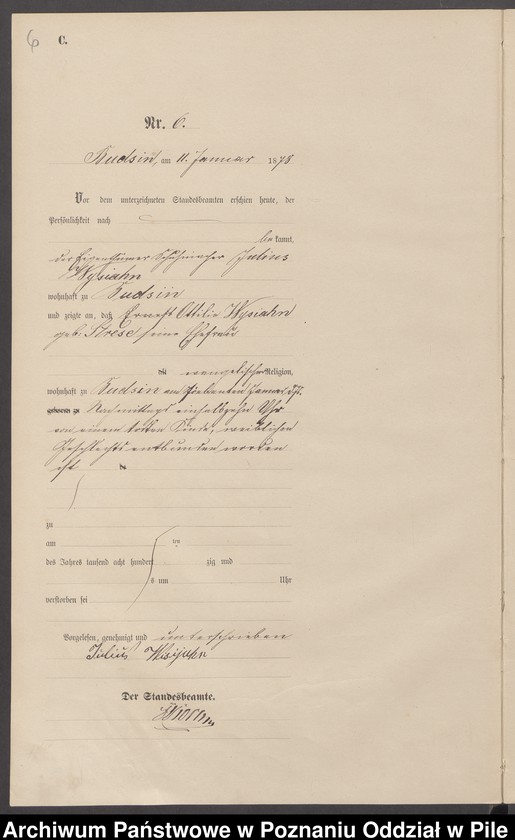 6
C.
Nr. 6.
Kudsin, am 11. Januar 1878
Vor dem unterzeichneten Standesbeamten erschien heute, der
Persönlichkeit nach
bekannt,
der Eigenthümer Schuhmacher Julius
Wysiahn
wohnhaft zu Kudsin
und zeigte an, daß Ottilie Wysiahn
geb. Strese seine Ehefrau
evangelischer Religion,
wohnhaft zu Kudsin am Januar
Nachmittags Uhr
von einem todten Kinde, weiblichen
Geschlechts entbunden worden
ist
zu
am ten
des Jahres tausend acht hundert zig und
um Uhr
verstorben sei
Vorgelesen, genehmigt und unterschrieben
Julius Wisijahn
Der Standesbeamte.
Archiwum Państwowe w Poznaniu Oddział w Pile